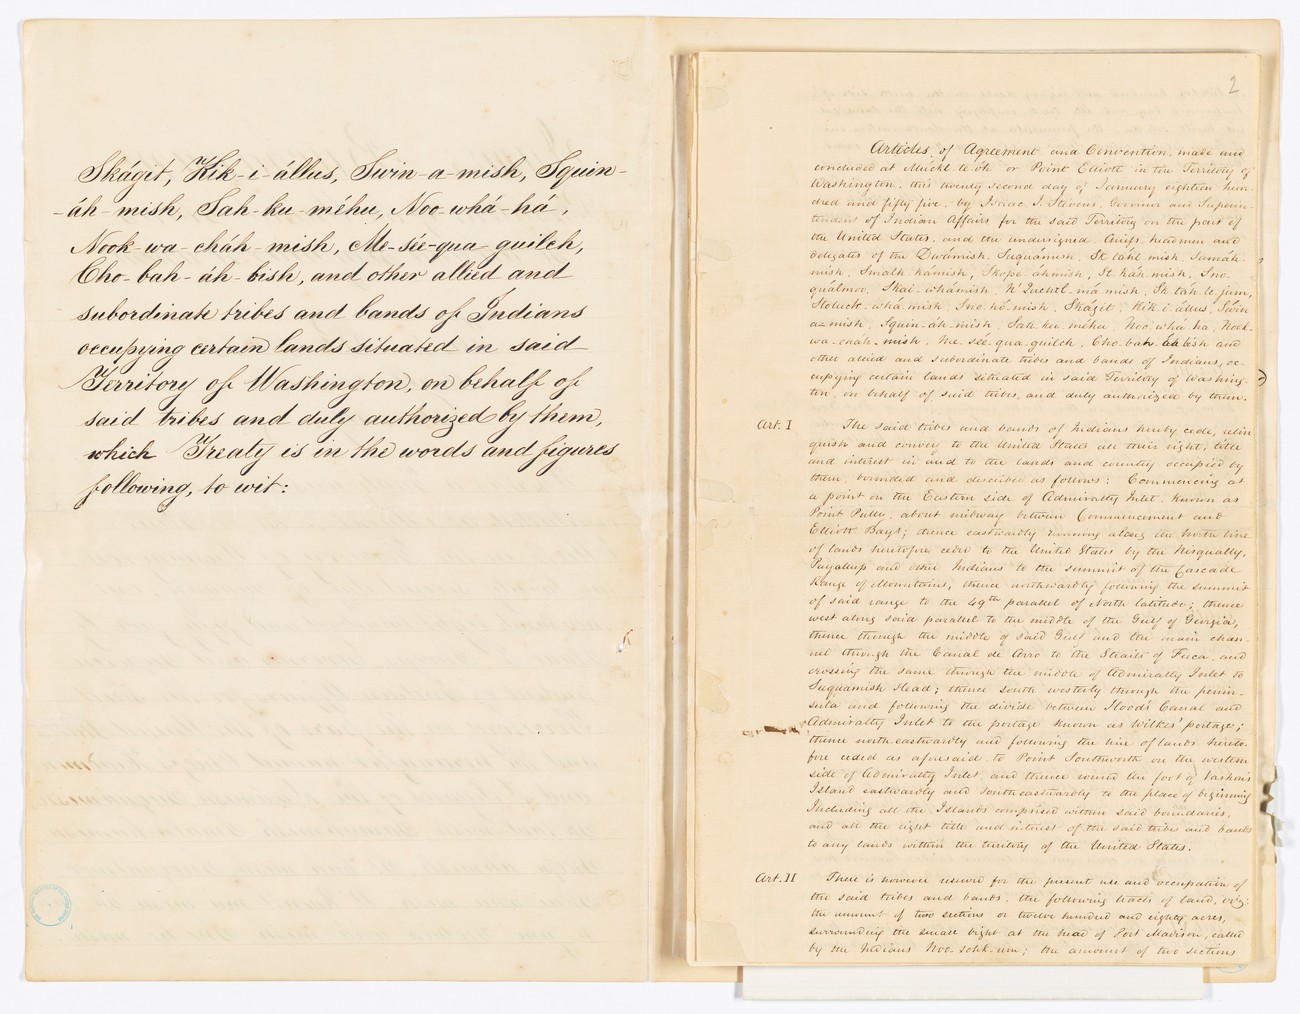 Skágit, Kik-i-állus, Swin-a-mish, Squin-
-áh-mish, Sah-ku-méhu, Noo-whá-há,
Nook-wa-cháh-mish, Me-sée-qua-guilch,
Cho-bah-áh-bish, and other allied and
subordinate tribes and bands of Indians
occupying certain lands situated in said
Territory of Washington, on behalf of
said tribes and duly authorized by them,
which Treaty is in the words and figures
following, to wit:
2
Articles of Agreement and Convention, made and
concluded at Múckl-te-óh or Point Elliott in the Territory of
Washington, this twenty second day of January eighteen hun-
dred and fifty five, by Isaac I. Stevens, Governor and Superin-
tendent of Indian Affairs for the said Territory on the part of
the United States, and the undersigned Chiefs, headmen and
delegates of the Dwámish, Suquámish, Sk táhl mish, Samáh-
mish, Smalh kámish, Skope-áhmish, St káh mish, Sno-
quálmoo, Skai-whámish, N'Quentl-má mish, Sk táh le jum,
Stoluck-whá mish, Sno-hó-mish, Skágit, Kik-i-állus, Swin
a-mish, Squin-áh-mish, Sah ku-méhu, Noo-whá ha, Nook-
wa-cháh-mish, Me-sée-qua-guilch, Cho-bah-áh bish and
other allied and subordinate tribes and bands of Indians, oc-
cupying certain lands situated in said Territory of Washing-
ton, on behalf of said tribes, and duly authorized by them.
Art. I The said tribes and bands of Indians hereby cede, relin
quish and convey to the United States all their right, title
and interest in and to the lands and country occupied by
them, bounded and described as follows: Commencing at
a point on the Eastern side of Admiralty Inlet, known as
Point Pully, about midway between Commencement and
Elliott Bays; thence eastwardly running along the North line
of lands heretofore ceded to the United States by the Nisqually,
Puyallup and other Indians to the summit of the Cascade
Range of Mountains, thence northwardly following the summit
of said range to the 49th parallel of North latitude; thence
west along said parallel to the middle of the Gulf of Georgia,
thence through the middle of said Gulf and the main chan-
nel through the Canal de Arro to the Straits of Fuca, and
crossing the same through the middle of Admiralty Inlet to
Suquamish Head; thence south westerly through the penin-
sula and following the divide between Hood's Canal and
Admiralty Inlet to the portage known as Wilkes' portage;
thence north-eastwardly and following the line of lands hereto-
fore ceded as aforesaid to Point Southworth on the western
side of Admiralty Inlet, and thence round the foot of Vashon's
Island eastwardly and southeastwardly to the place of beginning
Including all the Islands comprised within said boundaries,
and all the right title and interest of the said tribes and bands
to any lands within the territory of the United States.
Art. II There is however reserved for the present use and occupation of
the said tribes and bands, the following tracts of land, viz:
the amount of two sections or twelve hundred and eighty acres,
surrounding the small bight at the head of Port Madison, called
by the Indians Noo-sohk-um; the amount of two sections